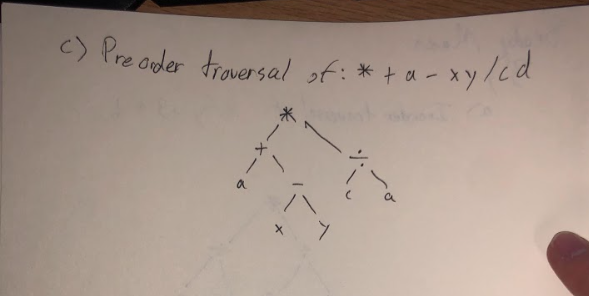 c) Preorder traversal of: * + a - x y / c d
*
+ ÷
a - c a
x y